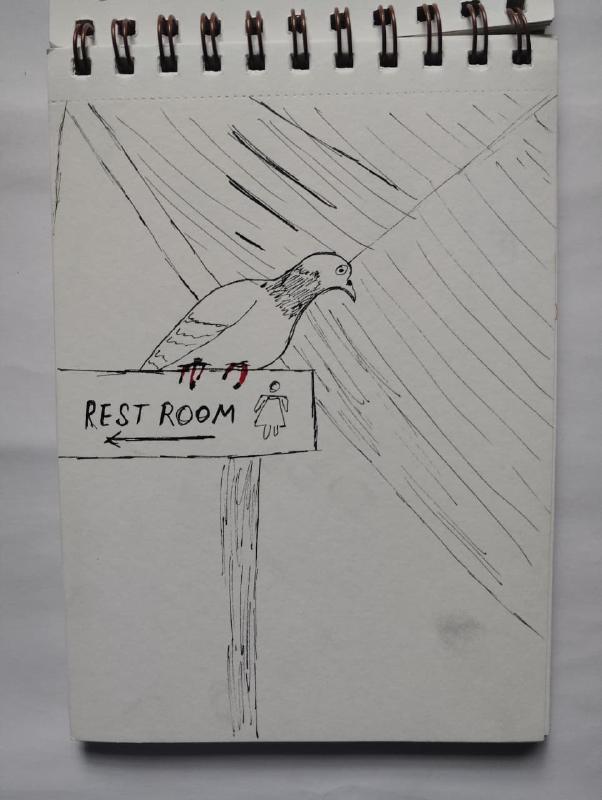 REST ROOM